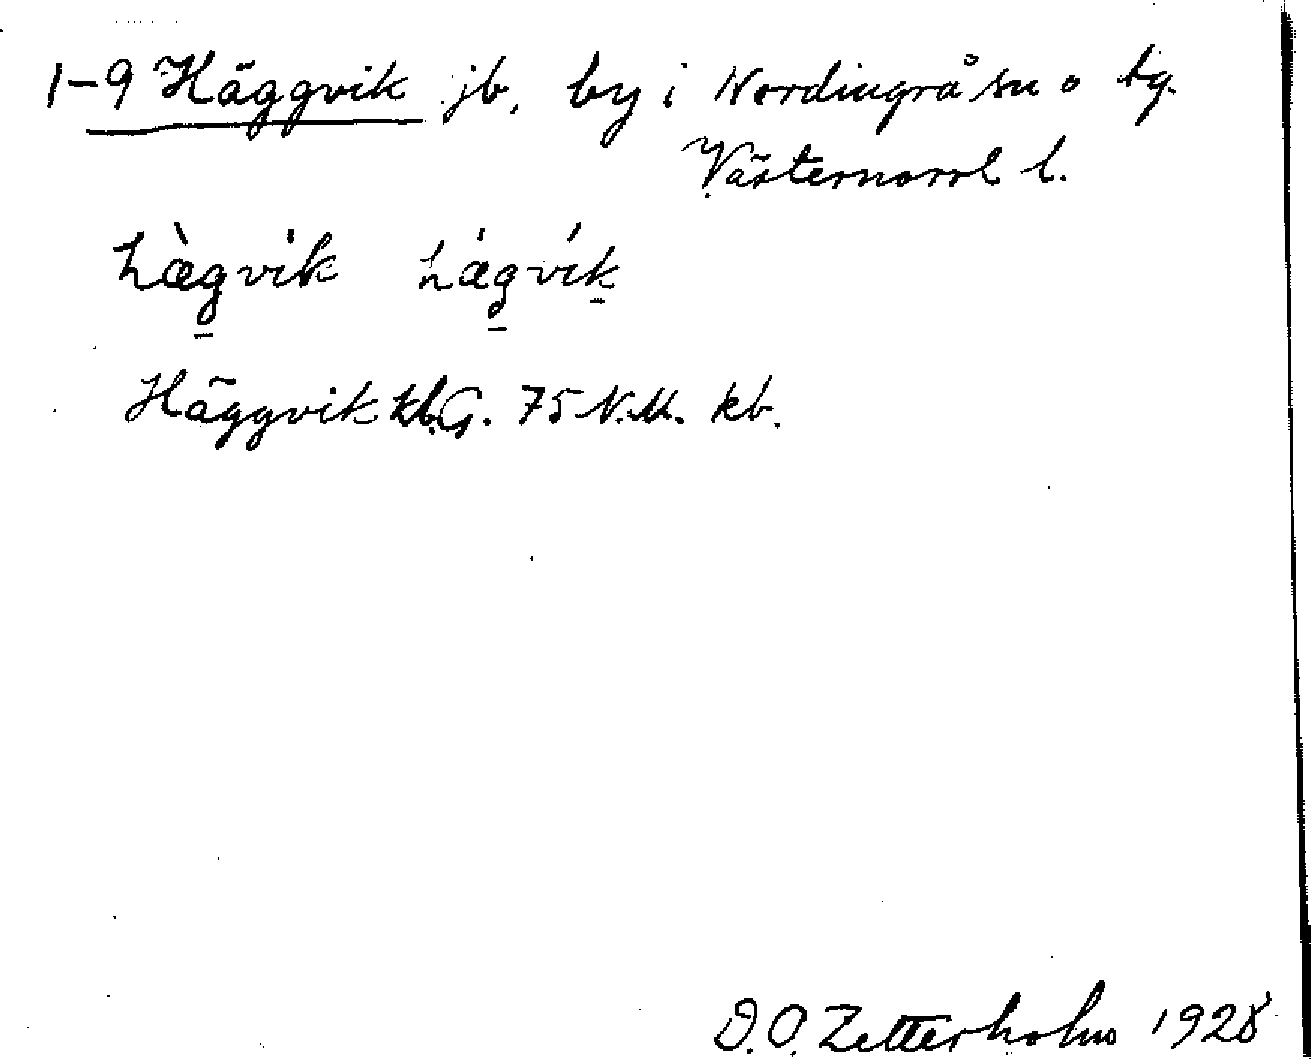 1-9 Häggvik jb, by i Nordingrå sn o tg.
Västernorrl l.
hæ̀gvík hǽgvík
Häggvik kb.G. 75 N.M. kb.
D.O. Zetterholm 1928